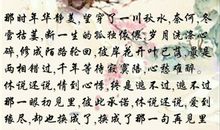 那时年华静美，望穿了一川秋水，奈何，冬
雪枯萎，新一生的孤独，岁月洗涤心
碎，修成陌路轮回，彼岸花开叶已落，
两相错过，千年等待寂寞语，心愁难醉。
休说还说，情到心悟，终是逃不过，逃不过
那一眼初见里，彼此承诺，休说还说，爱到
缘尽，却也换成了，换成了那一句再见里